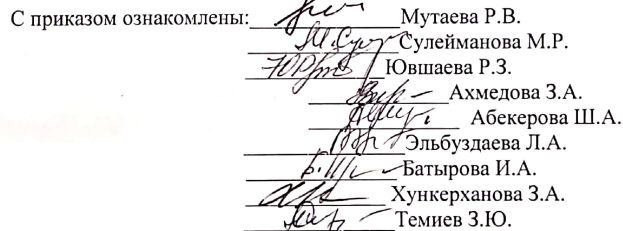 С приказом ознакомлены: Мутаева Р.В.
Сулейманова М.Р.
Ювшаева Р.З.
Ахмедова З.А.
Абекерова Ш.А.
Эльбуздаева Л.А.
Батырова И.А.
Хункерханова З.А.
Темиев З.Ю.